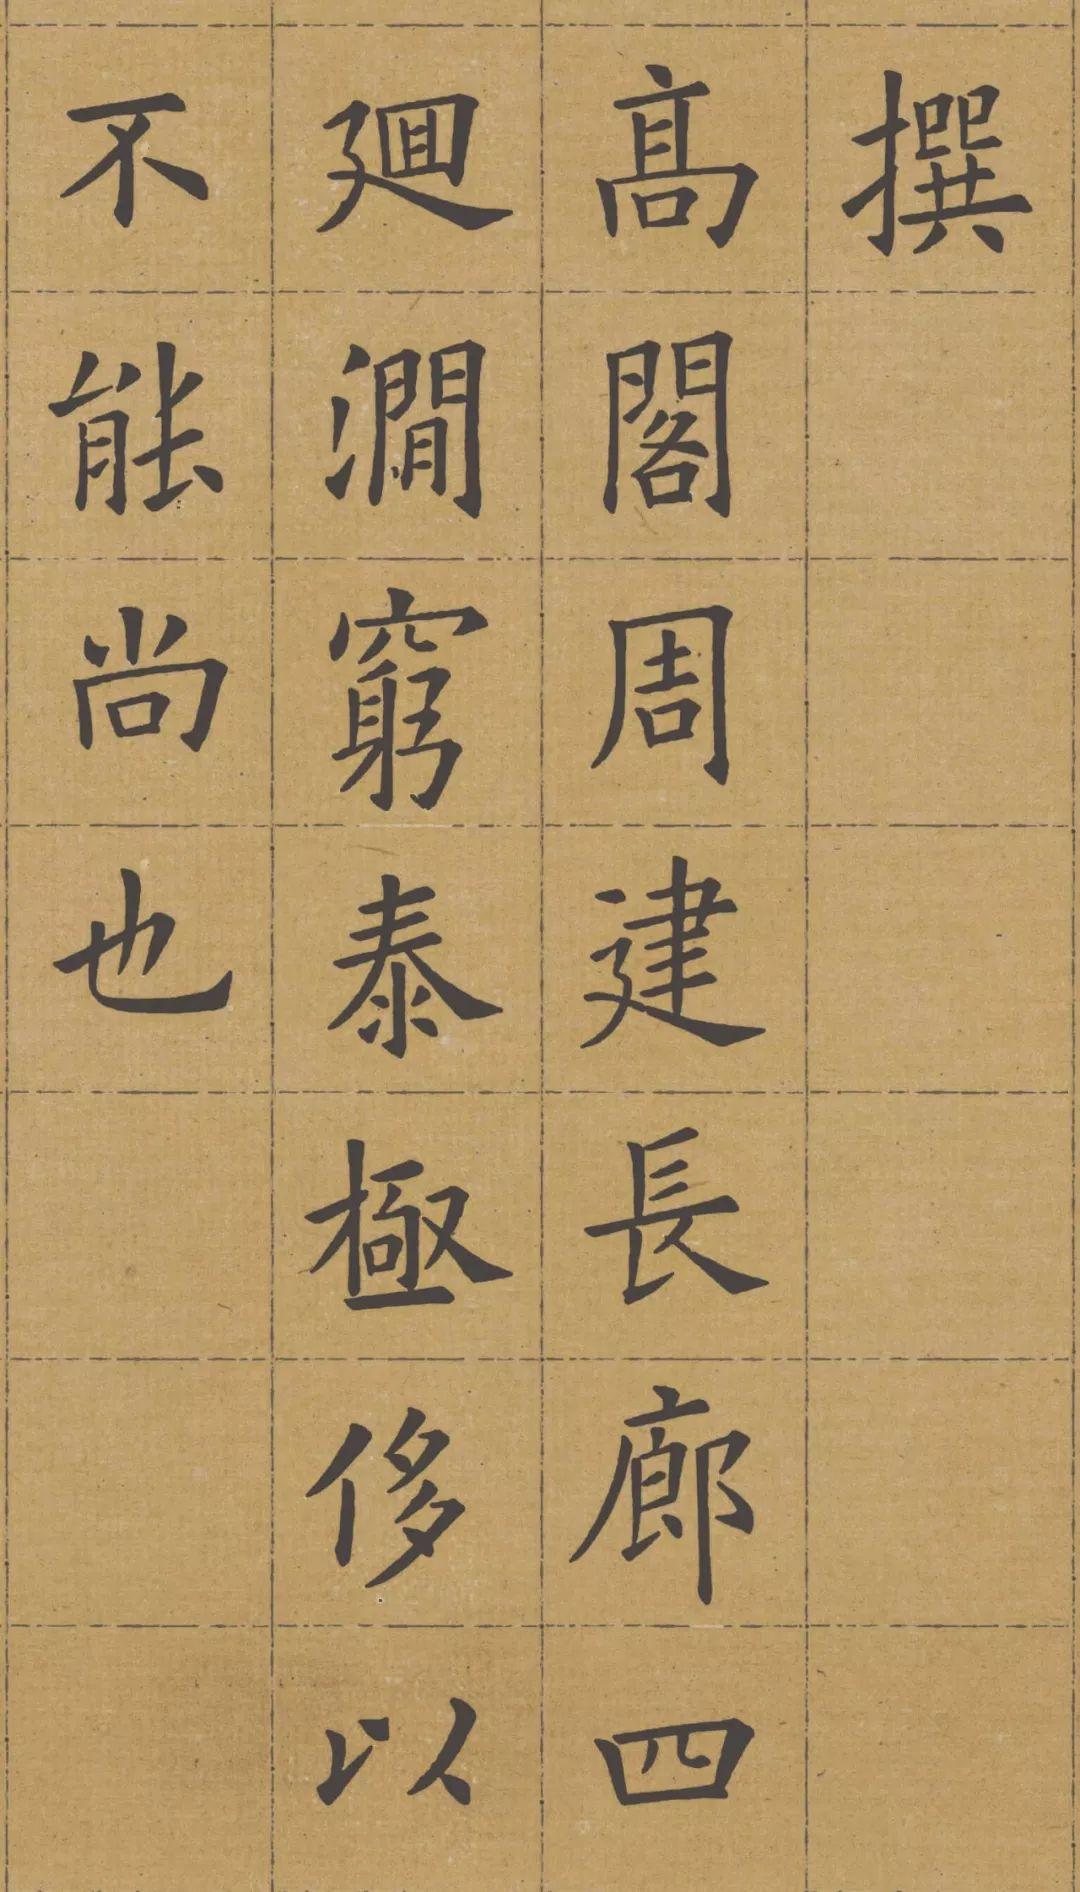 撰
高閣周建長廊四
迴澗窮泰極侈以
不能尚也